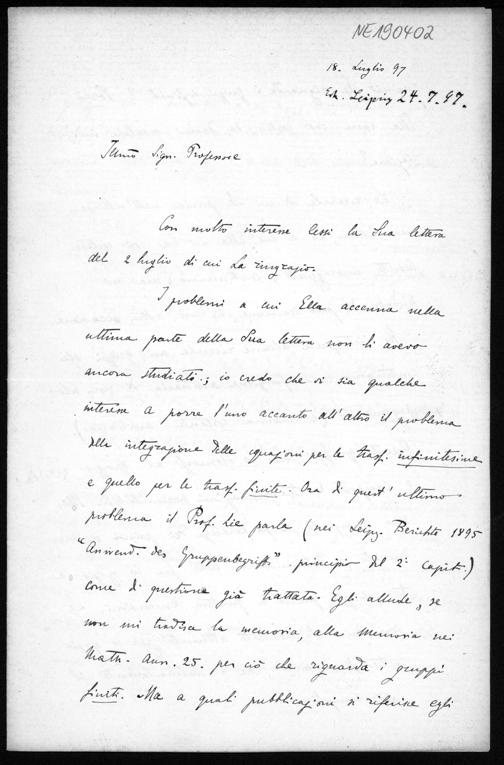 NE190402
18. Luglio 97
Erh. Leipzig 24.7.97.
Illmo Sign. Professore
Con molto interesse lessi la Sua lettera
del 2 luglio di cui La ringrazio.
I problemi a cui Ella accenna nella
ultima parte della Sua lettera non li avevo
ancora studiati; io credo che vi sia qualche
interesse a porre l'uno accanto all'altro il problema
della integrazione delle equazioni per le trasf. infinitesime
e quello per le trasf. finite. Ora di quest'ultimo
problema il Prof. Lie parla (nei Leipz. Berichte 1895
"Anwend. des Gruppenbegriffs" principio del 2° Capit.)
come di questione già trattata. Egli allude, se
non mi tradisce la memoria, alla Memoria nei
Math. Ann. 25. per ciò che riguarda i gruppi
finiti. Ma a quali pubblicazioni si riferisce egli